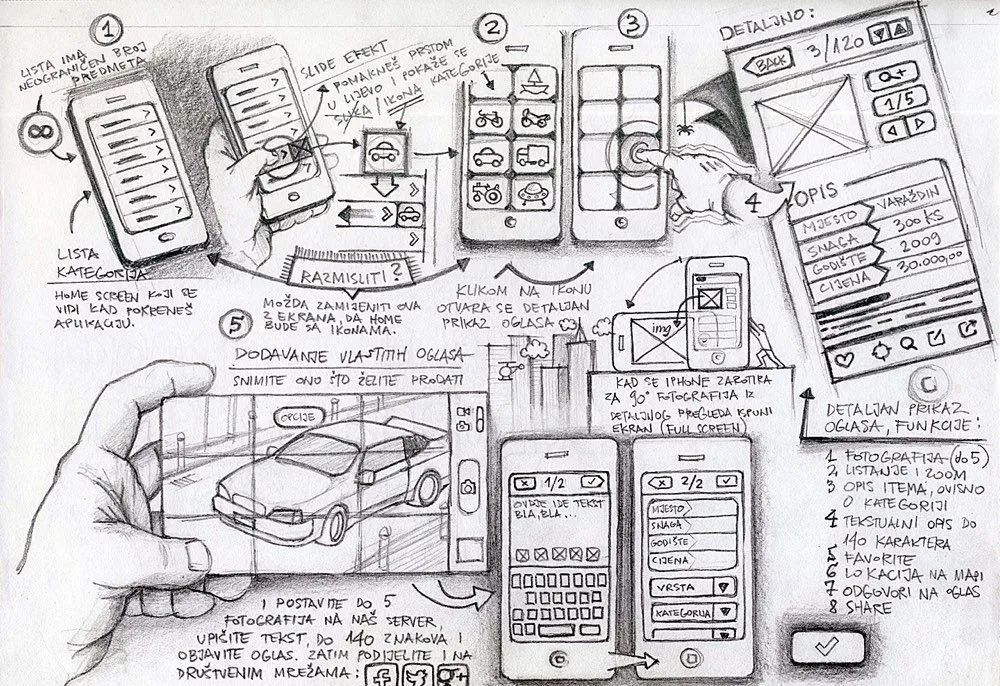 1
LISTA IMA
NEOGRANIČEN BROJ
PREDMETA
∞
LISTA
KATEGORIJA
HOME SCREEN KOJI SE
VIDI KAD POKRENEŠ
APLIKACIJU.
SLIDE EFEKT
POMAKNEŠ PRSTOM
U LIJEVO I POKAŽE SE
SLIKA / IKONA KATEGORIJE
RAZMISLITI?
MOŽDA ZAMIJENITI OVA
2 EKRANA, DA HOME
BUDE SA IKONAMA.
2
3
KLIKOM NA IKONU
OTVARA SE DETALJAN
PRIKAZ OGLASA
4
DETALJNO:
BACK
3/120
+
1/5
OPIS
MJESTO VARAŽDIN
SNAGA 300 KS
GODIŠTE 2009
CIJENA 30.000,00
img
KAD SE IPHONE ZAROTIRA
ZA 90° FOTOGRAFIJA IZ
DETALJNOG PREGLEDA ISPUNI
EKRAN (FULL SCREEN)
DETALJAN PRIKAZ
OGLASA, FUNKCIJE:
1 FOTOGRAFIJA (do 5)
2 LISTANJE I ZOOM
3 OPIS ITEMA, OVISNO
O KATEGORIJI
4 TEKSTUALNI OPIS DO
140 KARAKTERA
5 FAVORITE
6 LOKACIJA NA MAPI
7 ODGOVORI NA OGLAS
8 SHARE
5
DODAVANJE VLASTITIH OGLASA
SNIMITE ONO ŠTO ŽELITE PRODATI
OPCIJE
I POSTAVITE DO 5
FOTOGRAFIJA NA NAŠ SERVER,
UPIŠITE TEKST, DO 140 ZNAKOVA I
OBJAVITE OGLAS. ZATIM PODIJELITE I NA
DRUŠTVENIM MREŽAMA:
f
g+
1/2
OVDJE IDE TEKST
BLA, BLA, ...
2/2
MJESTO
SNAGA
GODIŠTE
CIJENA
VRSTA
KATEGORIJA